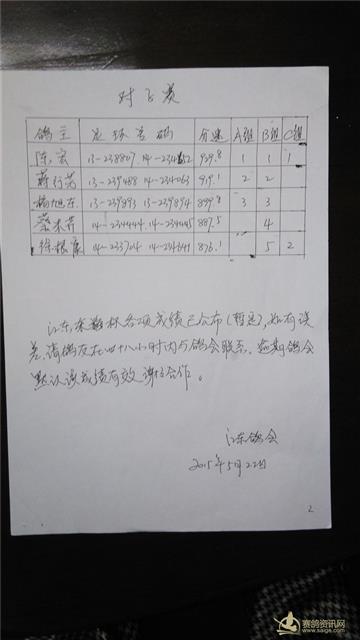 对飞赛
鸽主 足环号码 分速 A组 B组 C组
陈宏 13-238807 14-234152 929.8 1 1 1
蒋行芳 13-239488 14-234063 919.1 2 2
杨旭东 13-239893 13-239894 899.8 3 3
蔡未芳 14-234444 14-234445 887.5 4
徐根康 14-233704 14-234641 876.1 5 2
江东春赛杯各项成绩已公布(暂定),如有误
差,请鸽友在四十八小时内与鸽会联系,逾期鸽会
默认该成绩有效 谢谢合作。
江东鸽会
2015年5月22日
2
赛鸽资讯网
www.saige.com